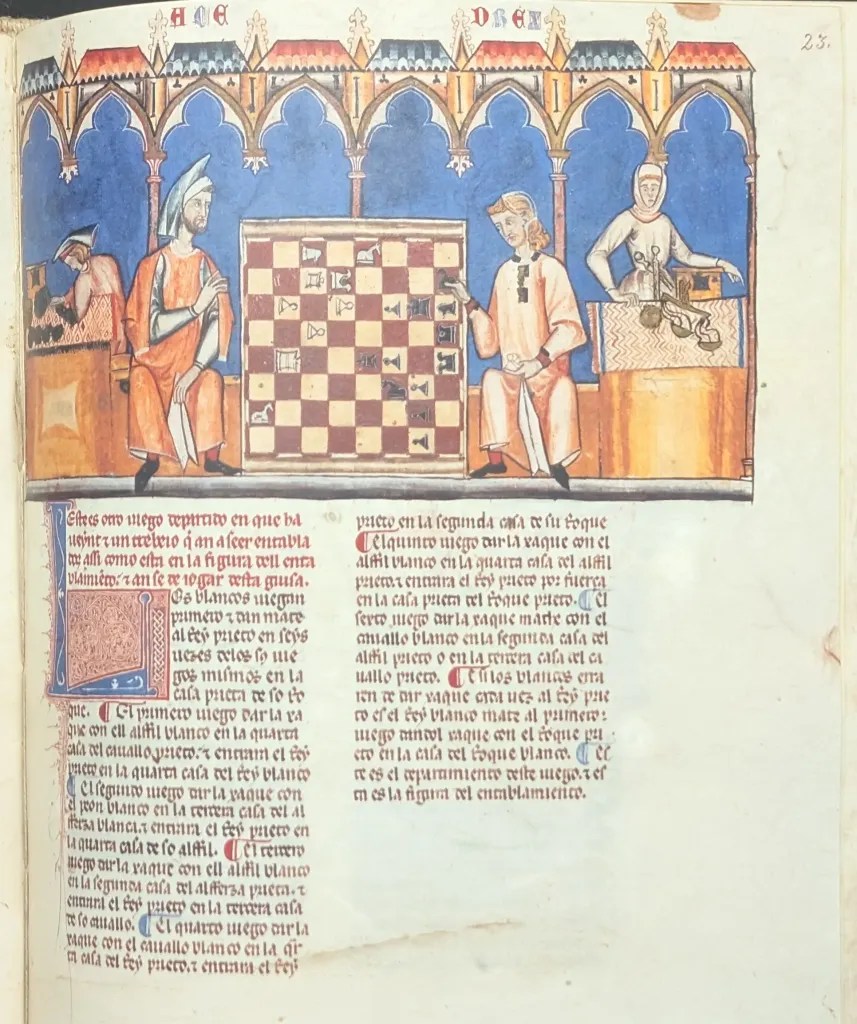 ACE DREX
23.
Este es otro iuego departido en que ha
ueynt & un trebeio q̃ an a seer entabla
dos assi como esta en la figura dell enta
blamiẽto. & an se de iogar desta guisa.
Los blancos iuegan
primero & dan mate
al Rey prieto en seys
uezes delos sus iue
gos mismos en la
casa prieta de so Ro
que. El primero iuego dar la xa
que con ell alffil blanco en la quarta
casa del cauallo prieto. & entrara el Rey
prieto en la quarta casa del Rey blanco
El segundo iuego dar la xaque con
el peon blanco en la tercera casa del al
fferza blanca. & entrara el Rey prieto en
la quarta casa de so alffil. El tercero
iuego dar la xaque con ell alffil blanco
en la segunda casa del alfferza prieta. &
entrara el Rey prieto en la tercera casa
de so cauallo. El quarto iuego dar la
xaque con el cauallo blanco en la qr̃
ta casa del Rey prieto. & entrara el Rey
prieto en la segunda casa de su Roque
El quinto iuego dar la xaque con el
alffil blanco en la quarta casa del alffil
prieto. & entrara el Rey prieto por fuerça
en la casa prieta del Roque prieto. El
sexto iuego dar la xaque mathe con el
cauallo blanco en la segunda casa del
alffil prieto o en la tercera casa del ca
uallo prieto. E si los blancos erra
ren de dar xaque cada uez al Rey prie
to es el Rey blanco mate al primero
iuego dandol xaque con el Roque pri
eto en la casa del Roque blanco. Es
te es el departimiento deste iuego. & es
ta es la figura del entablamiento.